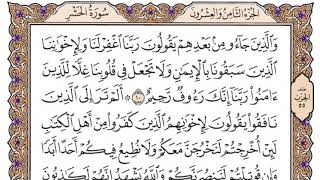 الجزء الثامن والعشرون
سورة الحشر
وَٱلَّذِينَ جَآءُو مِنۢ بَعْدِهِمْ يَقُولُونَ رَبَّنَا ٱغْفِرْ لَنَا وَلِإِخْوَٰنِنَا
ٱلَّذِينَ سَبَقُونَا بِٱلْإِيمَٰنِ وَلَا تَجْعَلْ فِى قُلُوبِنَا غِلًّا لِّلَّذِينَ
ءَامَنُوا۟ رَبَّنَآ إِنَّكَ رَءُوفٌ رَّحِيمٌ ١٠ أَلَمْ تَرَ إِلَى ٱلَّذِينَ
نَافَقُوا۟ يَقُولُونَ لِإِخْوَٰنِهِمُ ٱلَّذِينَ كَفَرُوا۟ مِنْ أَهْلِ ٱلْكِتَٰبِ
لَئِنْ أُخْرِجْتُمْ لَنَخْرُجَنَّ مَعَكُمْ وَلَا نُطِيعُ فِيكُمْ أَحَدًا أَبَدًا
وَإِن قُوتِلْتُمْ لَنَنصُرَنَّكُمْ وَٱللَّهُ يَشْهَدُ إِنَّهُمْ لَكَٰذِبُونَ
الحزب
٥٥